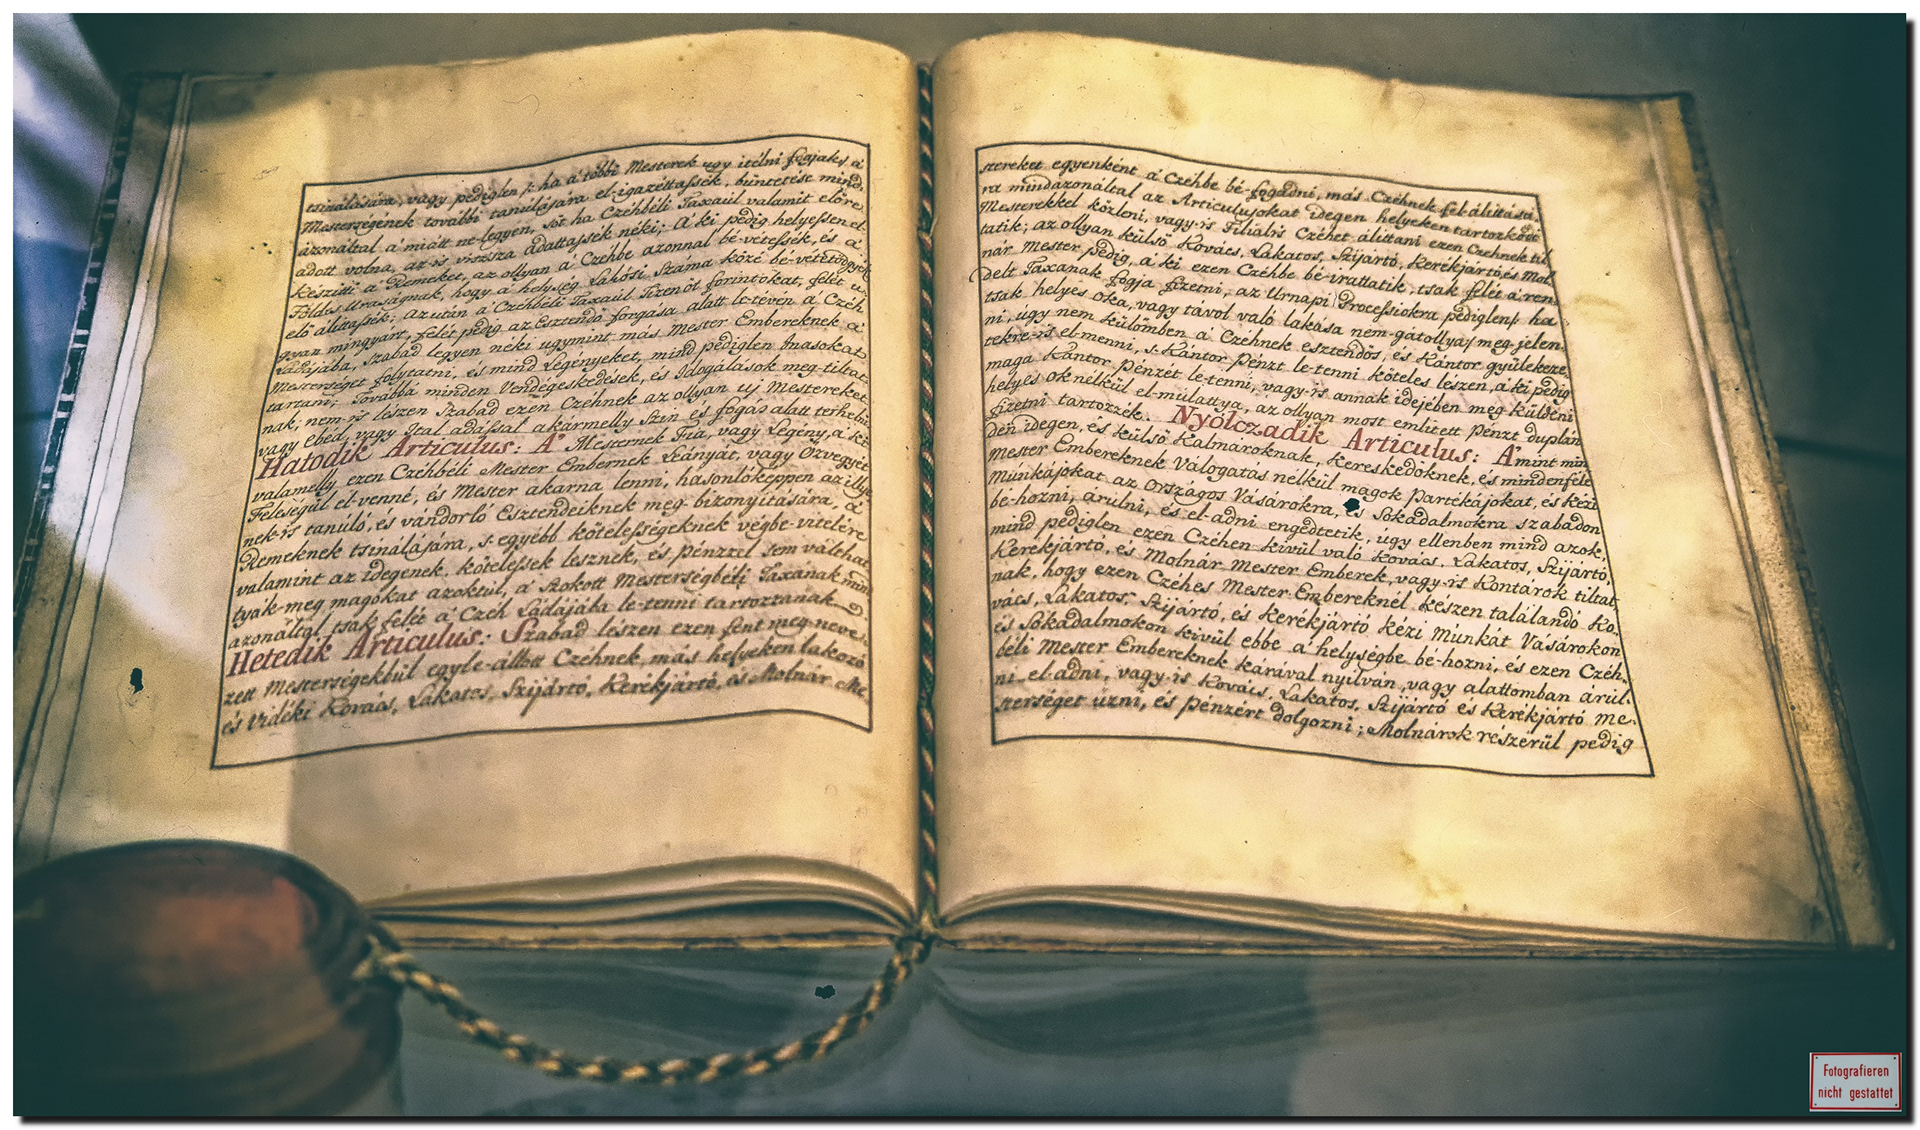 tsinálására, vagy pediglen /: ha a' többi Mesterek ugy itélni fogják :/ a'
Mesterségének további tanúlására el-igazéttassék, büntetése mind,
ázonáltal a' miátt ne-légyen, sőt ha Czéhbéli Taxaúl valamit előre
adott volna, az-is viszsza adattassék néki; A' ki pedig helyessen el-
készitti a' Remeket, az ollyan a' Czéhbe azonnal bé-vétessék, és a'
Földes Uraságnak, hogy a' helység Lakósi Száma közé bé-vétetődgyék
elő-álittassék; Az után a' Czéhbéli Taxaúl Tizenöt forintokat, felét u-
gyan mingyárt, felét pedig az Esztendő forgása alatt le-tévén a' Czéh
Ládájába, Szabad légyen néki ugymint más Mester Embereknek a'
Mesterséget folytatni, és mind Legényeket, mind pediglen Inasokat
tartani; Továbbá minden Vendégeskedések, és Idogálások meg-tiltat-
nak, nem-is lészen Szabad ezen Czéhnek az ollyan uj Mestereket
vagy Ebéd, vagy Ital adással akármelly Szin és fogás alatt terhelni.
Hatodik Articulus: A' Mesternek Fia, vagy Legény, a' ki
valamelly ezen Czéhbéli Mester Embernek Leányát, vagy Özvegyét
Feleségül el-venné, és Mester akarna lenni, hasonlóképpen az illye-
nek-is tanúló, és vándorló Esztendeiknek meg-bizonyitására, a'
Remeknek tsinálására, s-egyébb kötelességeknek végbe-vitelére
valamint az idegenek, kötelessek lesznek, és pénzzel sem válthat-
tyák-meg magokat azoktúl, a' Szokott Mesterségbéli Taxának mind-
azonáltal tsak felét a' Czéh Ládájába le-tenni tartoztanak.
Hetedik Articulus: Szabad lészen ezen fent meg-neve-
zett Mesterségekbül egyle-állott Czéhnek más helyeken lakozó
és vidéki Kovács, Lakatos, Szijártó, Kerékjártó, és Molnár Me-
stereket egyenként a' Czéhbe bé-fogadni, más Czéhnek fel-álittásá-
ra mindazonáltal az Articulusokat idegen helyeken tartozkodó
Mesterekkel közleni, vagy-is Filialis Czéhet álittani ezen Czéhnek til-
tatik; az ollyan külső Kovács, Lakatos, Szijártó, Kerékjártó, és Mol-
nár Mester pedig, a' ki ezen Czéhbe bé-irattatik, tsak felét a' ren-
delt Taxanak fogja fizetni, az Urnapi Processiokra pediglen /: ha
tsak helyes oka, vagy távol való lakása nem-gátollya :/ meg-jelen-
ni, ugy nem külömben a' Czéhnek esztendős, és Kántor gyülekeze-
tekre-is el-menni, s-Kántor Pénzt le-tenni köteles lészen, a' ki pedig
maga Kántor Pénzét le-tenni, vagy-is annak idejében meg-küldeni
helyes ok nélkül el-mulattya, az ollyan most emlitett Pénzt duplán
fizetni tartozzék. Nyólczadik Articulus: A' mint min-
den idegen, és külső Kalmároknak, Kereskedőknek, és mindenféle
Mester Embereknek Válogatás nélkül magok Partékájokat, és Kézi
Munkájokat az Országos Vásárokra, és Sokadalmokra szabadon
bé-hozni, árulni, és el-adni engedtetik, ugy ellenben mind azok,
mind pediglen ezen Czéhen kivül való Kovács, Lakatos, Szijártó,
Kerékjártó, és Molnár Mester Emberek, vagy-is Kontárok tiltat-
nak, hogy ezen Czéhes Mester Embereknél készen találandó Ko-
vács, Lakatos, Szijártó, és Kerékjártó kézi Munkát Vásárokon
és Sokadalmokon kivül ebbe a' helységbe bé-hozni, és ezen Czéh-
béli Mester Embereknek kárával nyilván, vagy alattomban árul-
ni, el-adni, vagy-is Kovács, Lakatos, Szijártó és Kerékjártó Me-
sterséget üzni, és pénzért dolgozni; Molnárok részérül pedig
Fotografieren
nicht gestattet